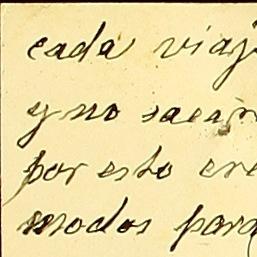 cada viaj
y no sacar
por esto cre
modos para